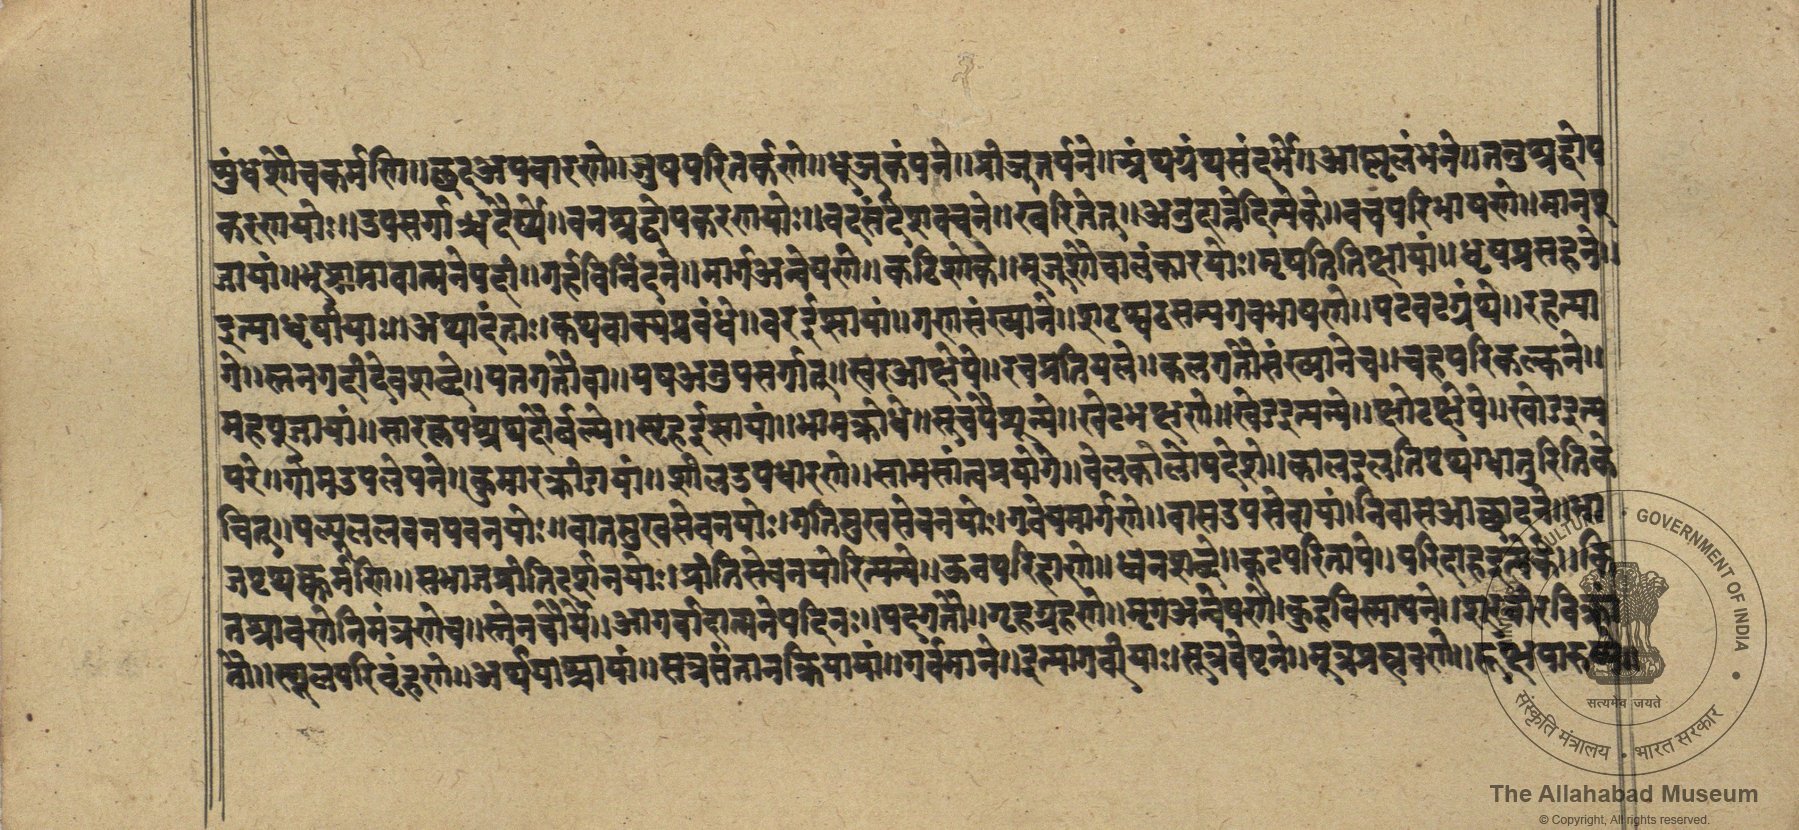 शुंधशौचकर्मणि॥छदअपवारणे॥जुषपरितर्कणे॥धूञकंपने॥प्रीञतर्पने॥श्रंथग्रंथसंदर्भे॥आप्लृलंभने॥तनुश्रद्धोप
करणयोः॥उपसर्गाच्चदैर्घ्ये॥वनश्रद्धोपकरणयोः॥वदसंदेशवचने॥स्वरितेत्॥अनुदात्तेदित्येके॥वचपरिभाषणे॥मानपू
जायां॥भूप्राप्तावात्मनेपदी॥गर्हविनिंदने॥मार्गअन्वेषणे॥कठिशोके॥मृजूशौचालंकारयोः॥मृषतितिक्षायां॥धृषप्रसहने॥
इत्याधृषीयाः॥अथादंताः॥कथवाक्यप्रबंधे॥वरईप्सायां॥गणसंख्याने॥शठश्वठसम्यगवभाषणे॥पटवटग्रंथे॥रहत्या
गे॥स्तनगदीदेवशब्दे॥पतगतौवा॥पषअनुपसर्गात्॥स्वरआक्षेपे॥रचप्रतियत्ने॥कलगतौसंख्यानेच॥चहपरिकल्कने॥
महपूजायां॥सारकृपश्रथदौर्बल्ये॥स्पृहईप्सायां॥भामक्रोधे॥सूचपैशून्ये॥खेटभक्षणे॥खेडइत्यन्ये॥क्षोटक्षेपे॥खोडइत्य
परे॥गोमउपलेपने॥कुमारक्रीडायां॥शीलउपधारणे॥सामसांत्वप्रयोगे॥वेलकालोपदेशे॥कालइलतिपृथग्धातुरितिके
चित्॥पल्पूललवनपवनयोः॥वातसुखसेवनयोः॥गतिसुखसेवनयोः॥गवेषमार्गणे॥वासउपसेवायां॥निवासआच्छादने॥भा
जपृथक्कर्मणि॥सभाजप्रीतिदर्शनयोः॥प्रीतिसेवनयोरित्यन्ये॥ऊनपरिहाणे॥ध्वनशब्दे॥कूटपरितापे॥परिदाहइत्यन्ये॥के
तश्रावणेनिमंत्रणेच॥स्तेनचौर्ये॥आगर्वादात्मनेपदिनः॥पदगतौ॥गृहग्रहणे॥मृगअन्वेषणे॥कुहविस्मापने॥शूरवीरविक्रां
तौ॥स्थूलपरिबृंहणे॥अर्थयाञ्चायां॥सत्रसंतानक्रियायां॥गर्वमाने॥इत्यागर्वीयाः॥सूत्रवेष्टने॥मूत्रप्रस्रवणे॥रूक्षपारुष्ये॥
GOVERNMENT OF INDIA
सत्यमेव जयते
संस्कृति मंत्रालय • भारत सरकार
The Allahabad Museum
© Copyright, All rights reserved.